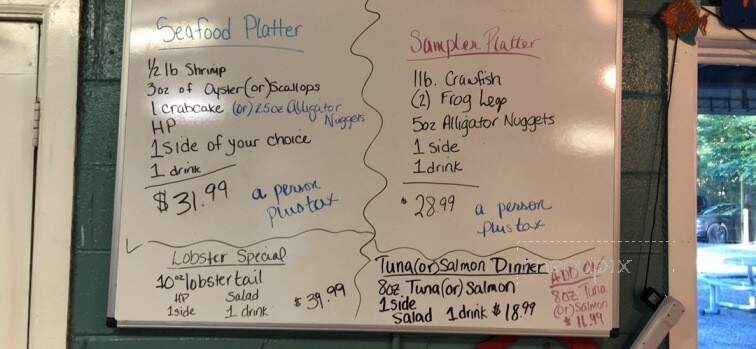 Seafood Platter
1/2 lb Shrimp
3oz of Oyster (or) Scallops
1 crabcake (or) 2.5oz Alligator Nuggets
HP
1 side of your choice
1 drink
$31.99 a person plus tax
Sampler Platter
1lb. Crawfish
(2) Frog Legs
5oz Alligator Nuggets
1 side
1 drink
28.99 a person plus tax
Lobster Special
10oz lobster tail
HP Salad
1 side 1 drink $39.99
Tuna (or) Salmon Dinner
8oz. Tuna (or) Salmon
1 side
Salad 1 drink $18.99
ADD ON
8oz Tuna
(or) Salmon
$11.99